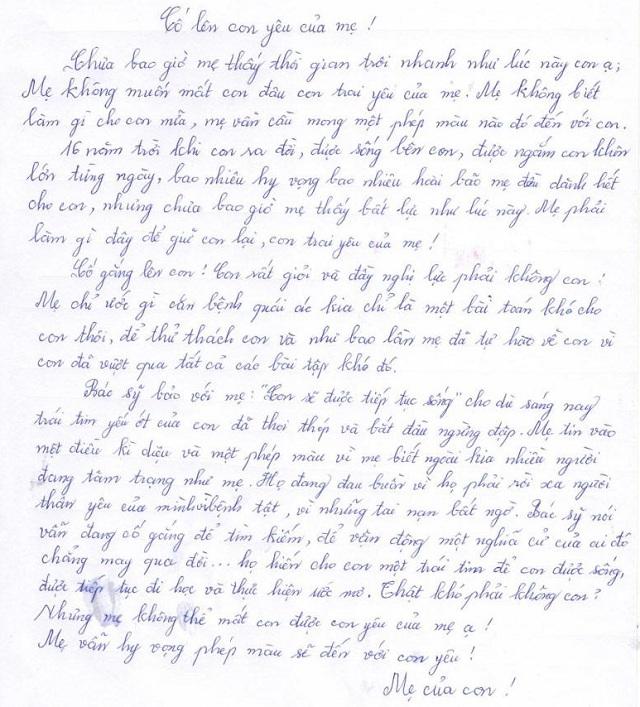 Cố lên con yêu của mẹ !
Chưa bao giờ mẹ thấy thời gian trôi nhanh như lúc này con ạ;
Mẹ không muốn mất con đâu con trai yêu của mẹ. Mẹ không biết
làm gì cho con nữa, mẹ vẫn cầu mong một phép màu nào đó đến với con.
16 năm trời khi con ra đời, được sống bên con, được ngắm con khôn
lớn từng ngày, bao nhiêu hy vọng bao nhiêu hoài bão mẹ đều dành hết
cho con, nhưng chưa bao giờ mẹ thấy bất lực như lúc này. Mẹ phải
làm gì đây để giữ con lại, con trai yêu của mẹ !
Cố gắng lên con ! Con rất giỏi và đầy nghị lực phải không con !
Mẹ chỉ ước gì căn bệnh quái ác kia chỉ là một bài toán khó cho
con thôi, để thử thách con và như bao lần mẹ đã tự hào về con vì
con đã vượt qua tất cả các bài tập khó đó.
Bác sỹ bảo với mẹ: "Con sẽ được tiếp tục sống" cho dù sáng nay
trái tim yếu ớt của con đã thoi thép và bắt đầu ngừng đập. Mẹ tin vào
một điều kì diệu và một phép màu vì mẹ biết ngoài kia nhiều người
đang tâm trạng như mẹ. Họ đang đau buồn vì họ phải rời xa người
thân yêu của mình vì bệnh tật, vì những tai nạn bất ngờ. Bác sỹ nói
vẫn đang cố gắng để tìm kiếm, để vận động một nghĩa cử của ai đó
chẳng may qua đời... họ hiến cho con một trái tim để con được sống,
được tiếp tục đi học và thực hiện ước mơ. Thật khó phải không con?
Nhưng mẹ không thể mất con được con yêu của mẹ ạ !
Mẹ vẫn hy vọng phép màu sẽ đến với con yêu !
Mẹ của con !